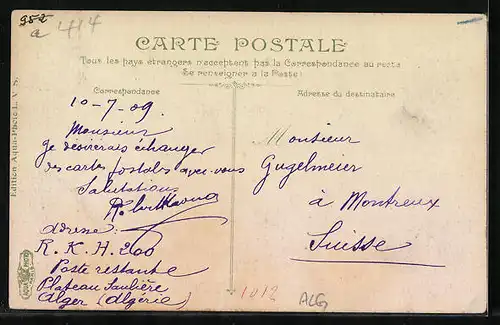 952
a 414
CARTE POSTALE
Tous les pays étrangers n'acceptent pas la Correspondance au recto
(Se renseigner à la Poste)
Correspondance
Adresse du destinataire
10-7-09.
Monsieur
Je désirerais échanger
des cartes postales avec vous
Salutations
adresse:
R. K. H. 200
Poste restante
Plateau Saulière
Alger (Algérie)
Monsieur
Gugelmeier
à Montreux
Suisse
1012
ALG
Edition Aqua-Photo L. V. S.